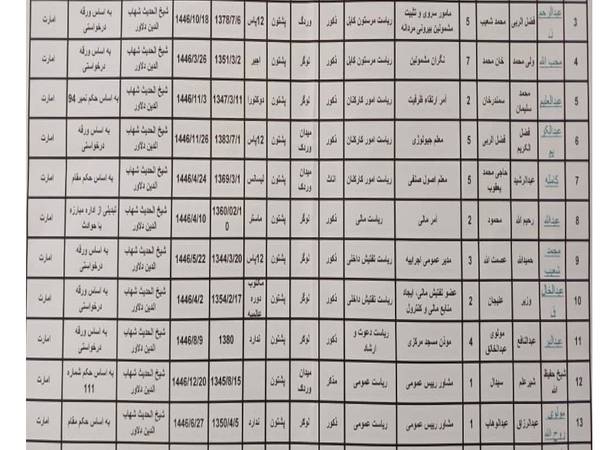 3 عبدالرحمن فضل الربی محمد شعیب 5 مامور سروی و تثبیت مشمولین بیرونی مردانه ریاست مرستون کابل ذکور وردک پشتون 12پاس 1378/7/6 1446/10/18 شیخ الحدیث شهاب الدین دلاور به اساس ورقه درخواستی امارت
4 محب الله ولی محمد خان محمد 7 نگران مشمولین ریاست مرستون کابل ذکور لوگر پشتون اجیر 1351/3/2 1446/3/26 شیخ الحدیث شهاب الدین دلاور به اساس ورقه درخواستی امارت
5 عبدالعلیم محمد سلیمان سمندرخان 2 آمر ارتقاء ظرفیت ریاست امور کارکنان ذکور لوگر پشتون دوکتورا 1347/3/11 1446/11/3 شیخ الحدیث شهاب الدین دلاور به اساس حکم نمبر 94 امارت
6 عبدالکریم فضل الکریم فضل الربی 5 معلم جیولوژی ریاست امور کارکنان ذکور میدان وردک پشتون 12پاس 1383/7/1 1446/11/26 شیخ الحدیث شهاب الدین دلاور به اساس ورقه درخواستی امارت
7 کامله عبدالرشید حاجی محمد یعقوب 5 معلم اصول صنفی ریاست امور کارکنان اناث میدان وردک پشتون لیسانس 1369/3/1 1446/4/24 شیخ الحدیث شهاب الدین دلاور به اساس حکم مقام امارت
8 عبدالله رحیم الله محمود 2 آمر مالی ریاست مالی ذکور لوگر پشتون ماستر 1360/02/10 1446/4/10 شیخ الحدیث شهاب الدین دلاور تبدیلی از اداره مبارزه با حوادث امارت
9 محمد شعیب حمیدالله عصمت الله 3 مدیر عمومی اجرائیه ریاست تفتیش داخلی ذکور لوگر پشتون 12پاس 1344/3/20 1446/5/22 شیخ الحدیث شهاب الدین دلاور به اساس ورقه درخواستی امارت
10 عبدالخالق وزیر علیجان 2 عضو تفتیش مالی، ایجاد منابع مالی و کنترول ریاست تفتیش داخلی ذکور لوگر پشتون دوره عالمیه 1354/2/17 1446/4/2 شیخ الحدیث شهاب الدین دلاور به اساس ورقه درخواستی امارت
11 عبدالبر عبدالنافع مولوی عبدالخالق 4 موذن مسجد مرکزی ریاست دعوت و ارشاد ذکور لوگر پشتون ندارد 1380 1446/8/9 شیخ الحدیث شهاب الدین دلاور به اساس ورقه درخواستی امارت
12 شیخ حفیظ الله شیرعلم سیدال 1 مشاور رییس عمومی ریاست عمومی مذکر میدان وردک پشتون 1345/8/15 1446/12/20 شیخ الحدیث شهاب الدین دلاور به اساس حکم شماره 111 امارت
13 مولوی روح الله عبدالرزاق عبدالوهاب 1 مشاور رییس عمومی ریاست عمومی ذکور لوگر پشتون ندارد 1350/4/5 1446/6/27 شیخ الحدیث شهاب الدین دلاور به اساس حکم مقام امارت